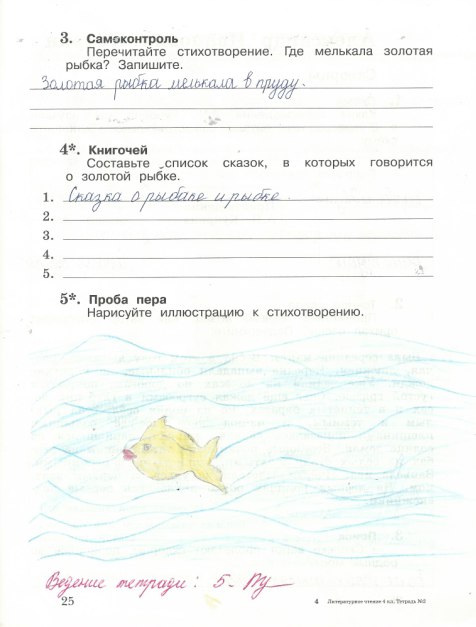 3. Самоконтроль
Перечитайте стихотворение. Где мелькала золотая
рыбка? Запишите.
Золотая рыбка мелькала в пруду.
4*. Книгочей
Составьте список сказок, в которых говорится
о золотой рыбке.
1. Сказка о рыбаке и рыбке.
2.
3.
4.
5.
5*. Проба пера
Нарисуйте иллюстрацию к стихотворению.
Ведение тетради: 5-
25
4 Литературное чтение 4 кл. Тетрадь №2